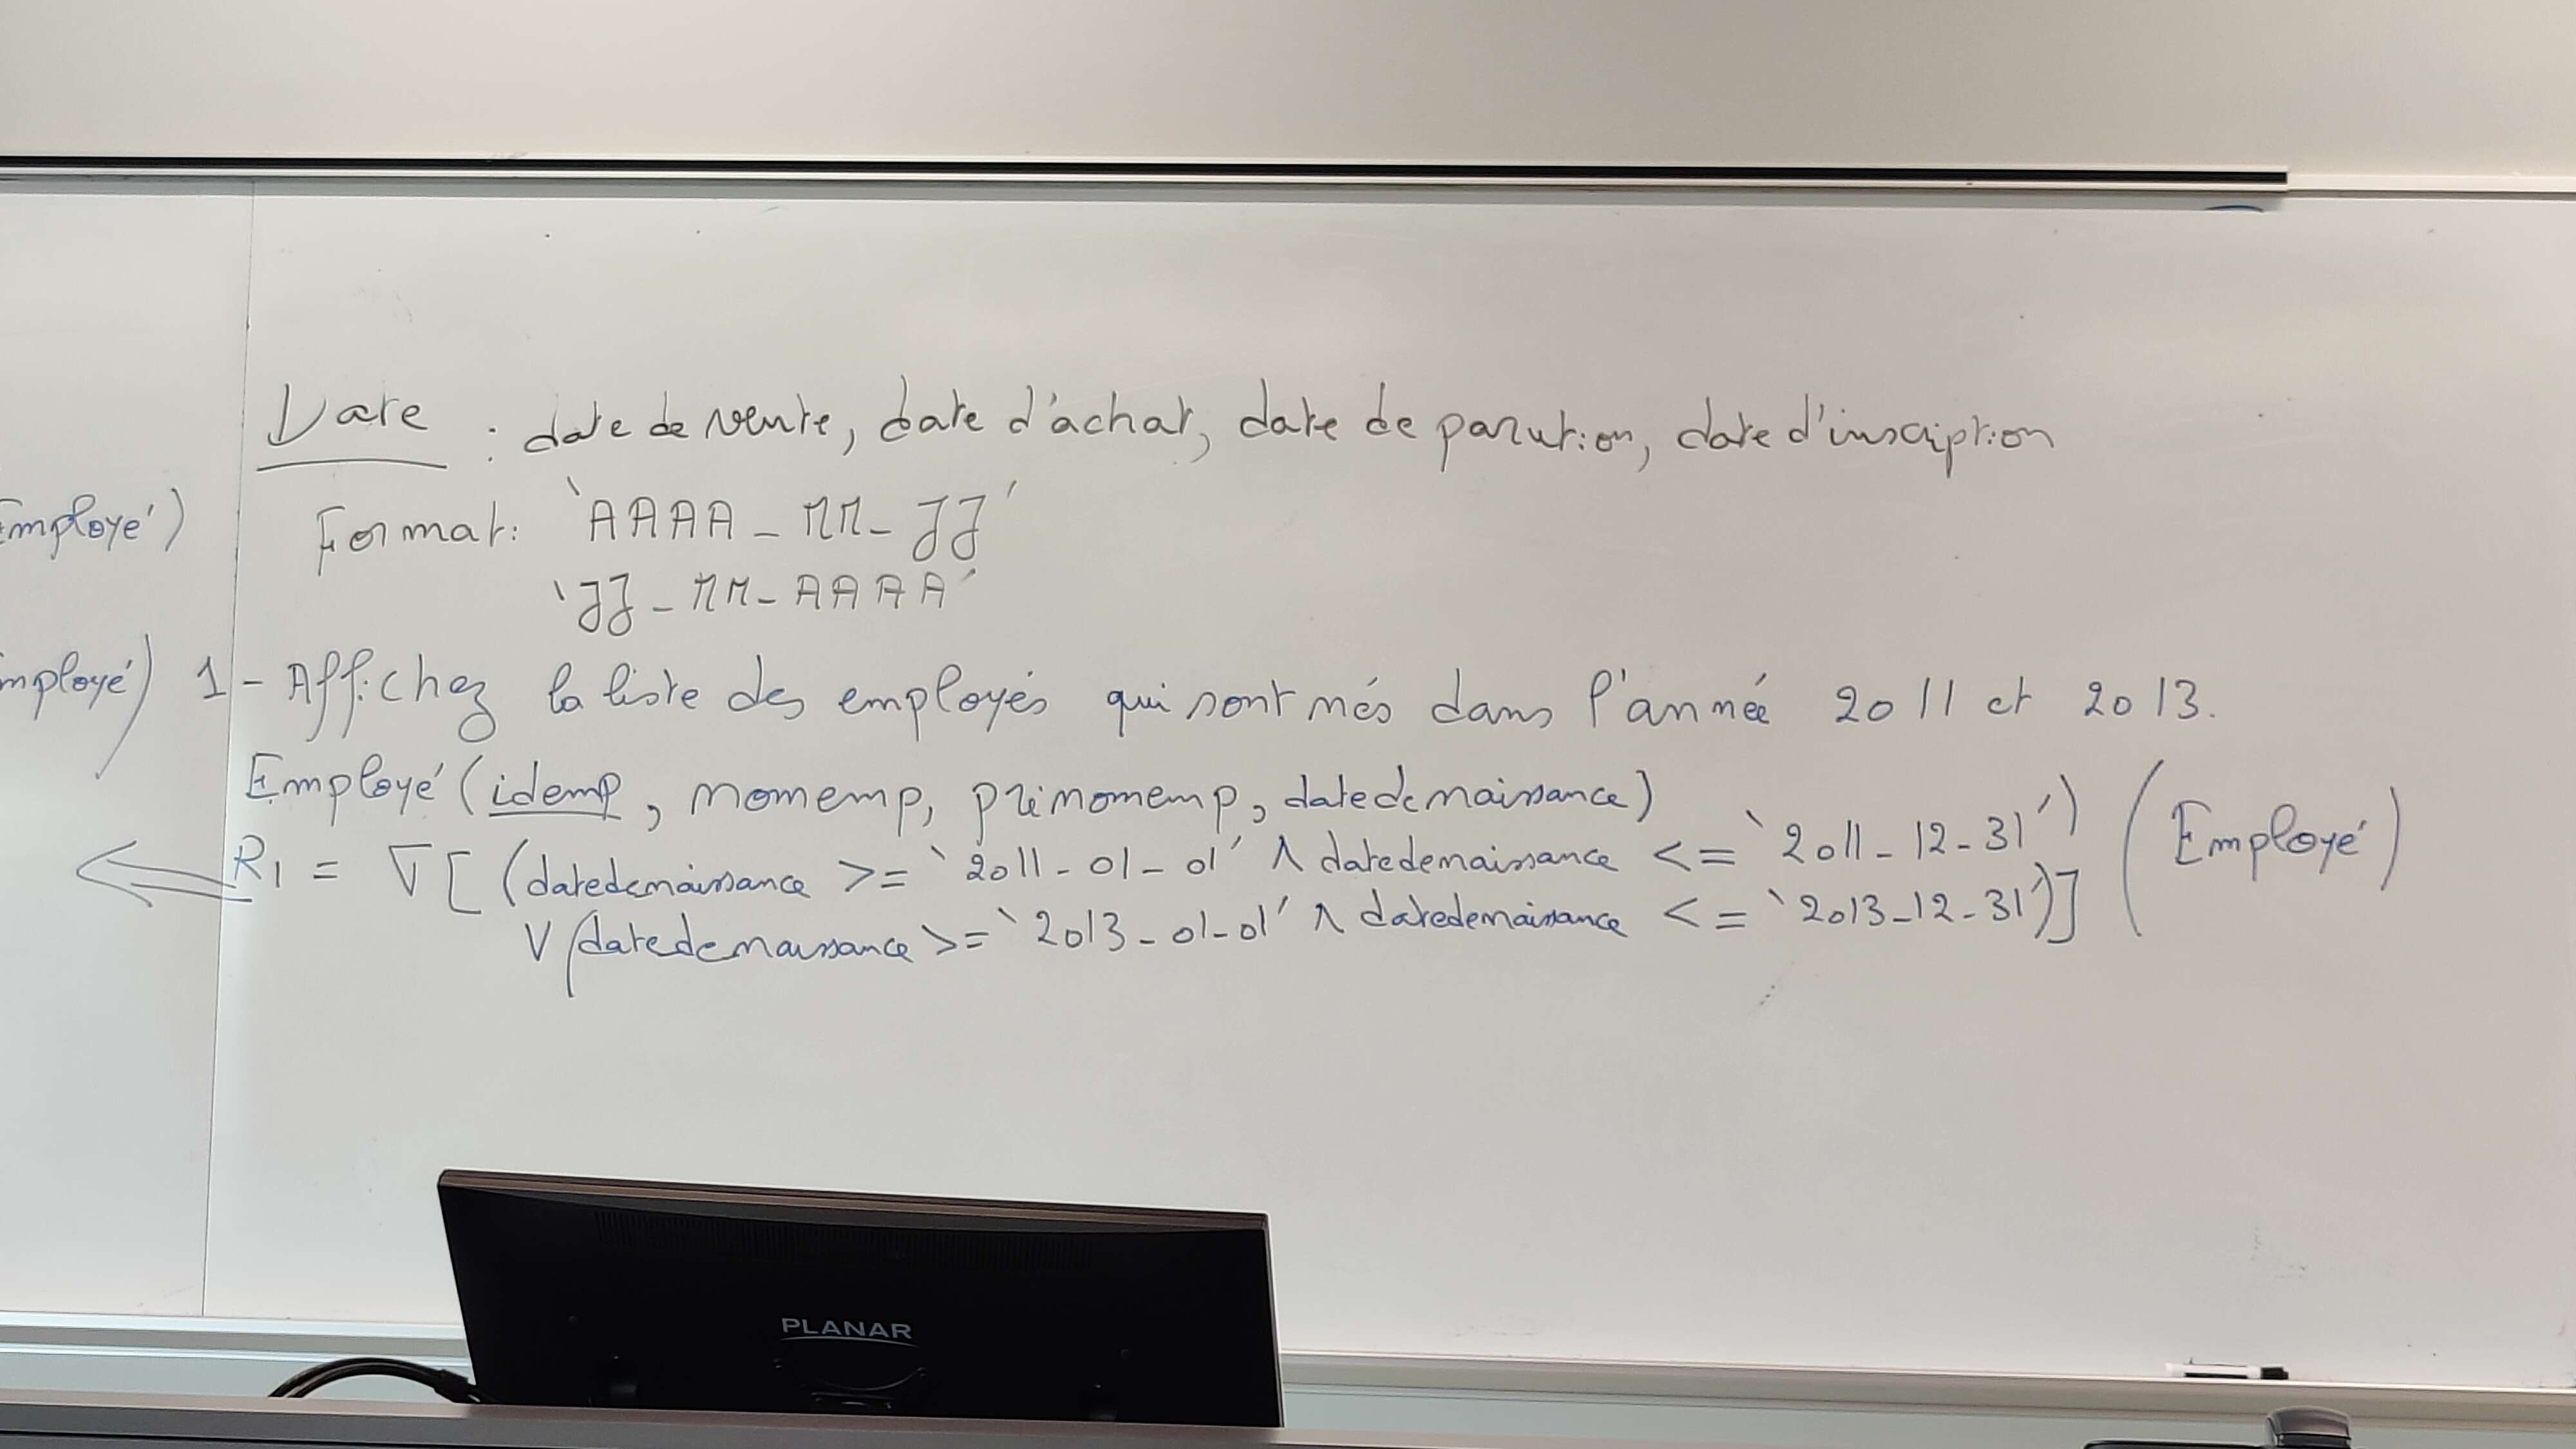 Date : date de vente, date d'achat, date de parution, date d'inscription
Employé)
Format: 'AAAA-MM-JJ'
'JJ-MM-AAAA'
mployé)
1-Affichez la liste des employés qui sont nés dans l'année 2011 et 2013.
Employé(idemp, nomemp, prénomemp, datedenaissance)
R1 = σ[(datedenaissance >= '2011-01-01' ∧ datedenaissance <= '2011-12-31')
∨(datedenaissance >= '2013-01-01' ∧ datedenaissance <= '2013-12-31')] (Employé)
PLANAR